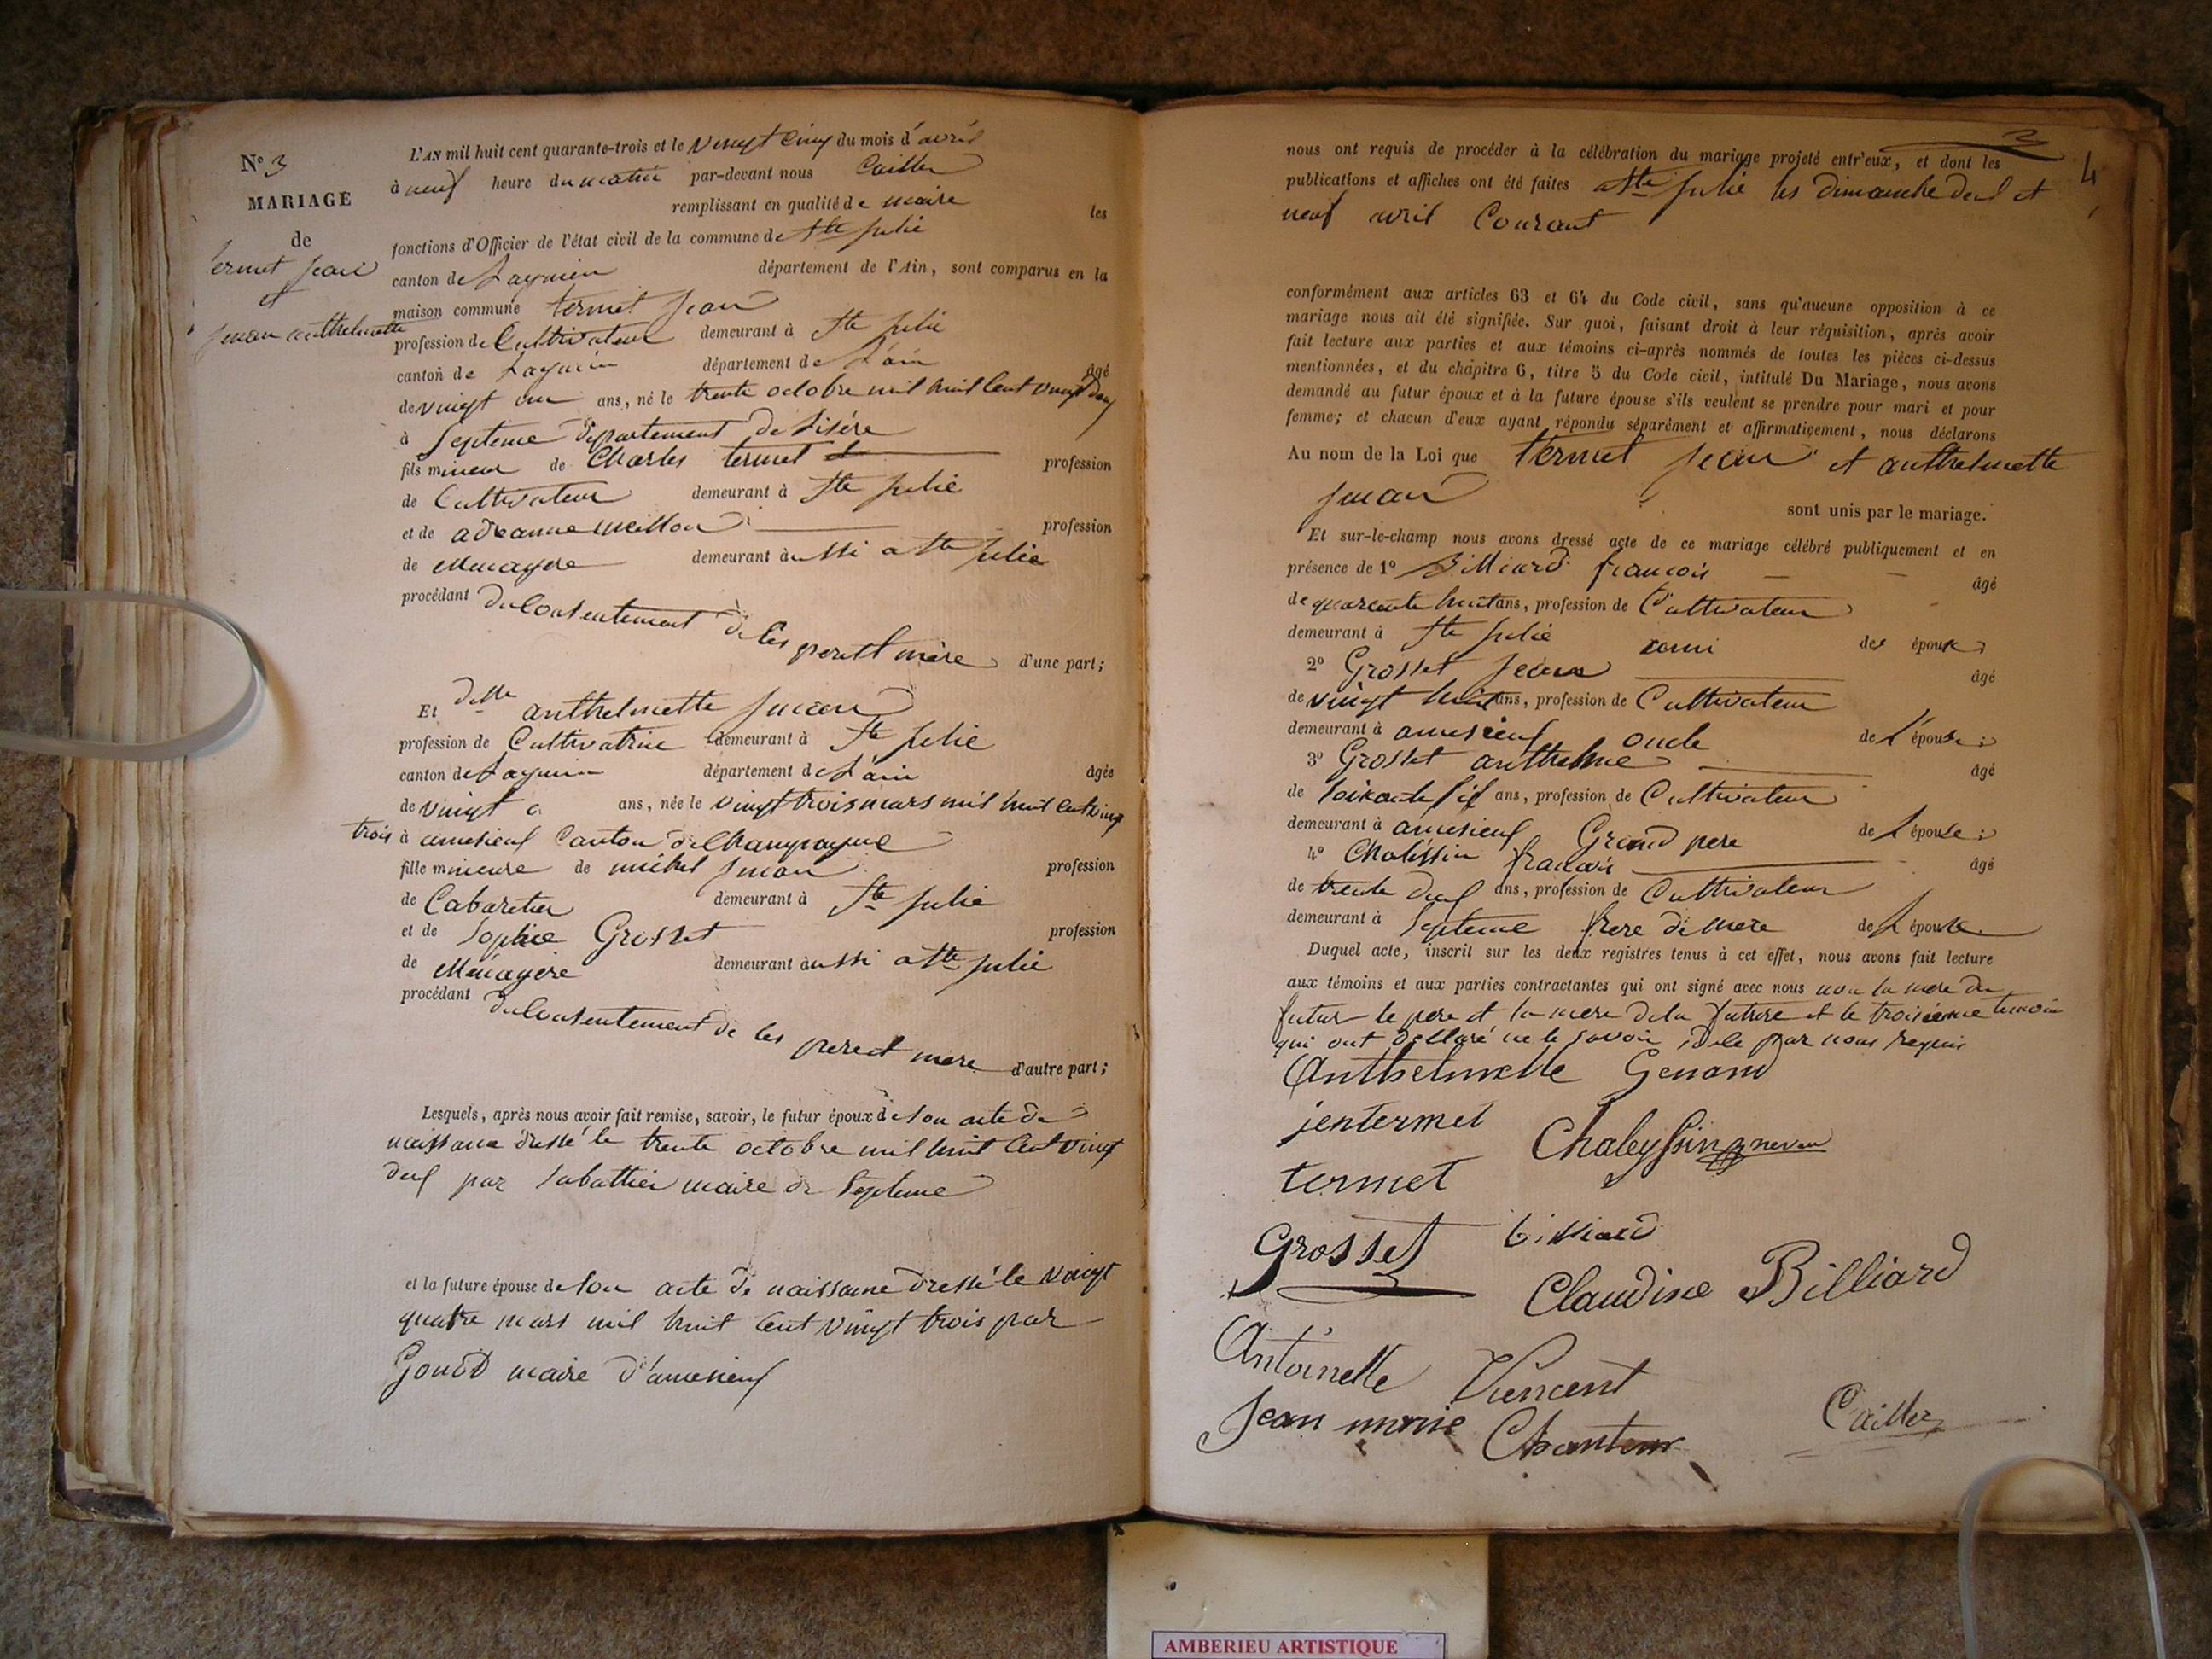 N° 3
MARIAGE
de
termet jean
et
anthelmette
L'AN mil huit cent quarante-trois et le vingt cinq du mois d'avril
à neuf heure du matin par-devant nous Cailler
remplissant en qualité de maire les
fonctions d'Officier de l'état civil de la commune de Ste julie
canton de Lagnieu département de l'Ain, sont comparus en la
maison commune termet jean
profession de Cultivateur demeurant à Ste julie
canton de Lagnieu département de L'ain âgé
de vingt un ans, né le trente octobre mil huit Cent vingt deux
à Septeme département de Lisére
fils mineur de Charles termet profession
de Cultivateur demeurant à Ste julie
et de profession
de Menagere demeurant aussi a Ste julie
procédant du Consentement de ses pere et mère d'une part;
Et delle anthelmette
profession de Cultivatrice demeurant à Ste julie
canton de Lagnieu département de L'ain âgée
de vingt ans, née le vingt trois mars mil huit cent vingt
trois à Canton de Champagne
fille mineure de michel profession
de Cabaretier demeurant à Ste julie
et de Sophie Grosset profession
de Ménagère demeurant aussi a Ste julie
procédant du Consentement de ses pere et mere d'autre part;
Lesquels, après nous avoir fait remise, savoir, le futur époux de son acte de
naissance dressé le trente octobre mil huit Cent vingt
deux par Sabattier maire de Septeme
et la future épouse de son acte de naissance dressé le vingt
quatre mars mil huit Cent vingt trois par
maire
3
4
nous ont requis de procéder à la célébration du mariage projeté entr'eux, et dont les
publications et affiches ont été faites a Ste julie les dimanche deux et
neuf avril Courant
conformément aux articles 63 et 64 du Code civil, sans qu'aucune opposition à ce
mariage nous ait été signifiée. Sur quoi, faisant droit à leur réquisition, après avoir
fait lecture aux parties et aux témoins ci-après nommés de toutes les pièces ci-dessus
mentionnées, et du chapitre 6, titre 5 du Code civil, intitulé Du Mariage, nous avons
demandé au futur époux et à la future épouse s'ils veulent se prendre pour mari et pour
femme; et chacun d'eux ayant répondu séparément et affirmativement, nous déclarons
Au nom de la Loi que termet jean et anthelmette
sont unis par le mariage.
Et sur-le-champ nous avons dressé acte de ce mariage célébré publiquement et en
présence de 1° Billiard françois âgé
de quarente huit ans, profession de Cultivateur
demeurant à Ste julie ami des époux;
2° Grosset jean âgé
de vingt huit ans, profession de Cultivateur
demeurant à oncle de L'épouse;
3° Grosset anthelme âgé
de soixante ans, profession de Cultivateur
demeurant à Grand pere de L'épouse;
4° françois âgé
de trente deux ans, profession de Cultivateur
demeurant à Septeme frere de mere de L'époux
Duquel acte, inscrit sur les deux registres tenus à cet effet, nous avons fait lecture
aux témoins et aux parties contractantes qui ont signé avec nous non la mere du
futur le pere et la mere de la future et le troisieme temoin
qui ont déclaré ne le savoir de ce par nous requis
Anthelmette Genand
jentermet
Chaleyssin neveu
termet
Grosset
billiard
Claudine Billiard
Antoinette Vincent
Jean marie Chanteur
Cailler
AMBERIEU ARTISTIQUE